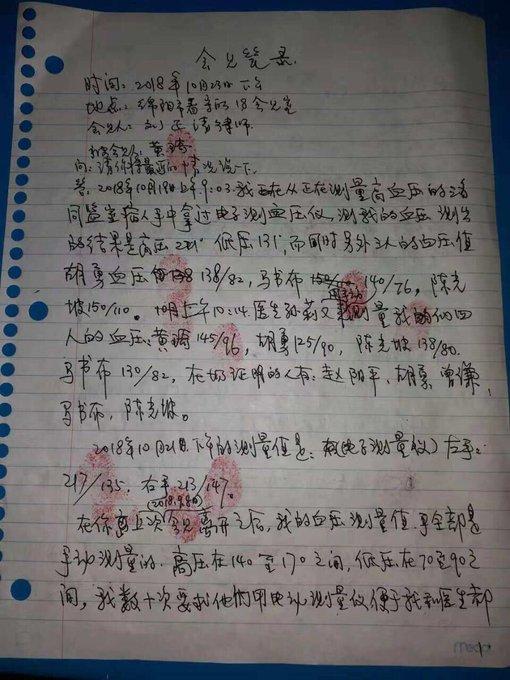 会见笔录.
时间: 2018年10月23日下午
地点: 绵阳市看守所18会见室
会见人: 刘正清律师.
被会见人: 黄琦
问: 请你将最近的情况说一下.
答: 2018年10月19日上午9:03.我正在从正在测量高血压的
同监室病人手中拿过电子测血压仪,测我的血压 测出
的结果是高压221 低压131,而同时另外3人的血压值
胡勇血压138/82, 马书布140/76, 陈光
坡150/110. 上午10:14.医生测量我们四
人的血压:黄琦145/96, 胡勇125/90, 陈光坡138/80.
马书布130/82, 在场证明的人有: 赵阳平. 胡勇. 曾谦,
马书布, 陈光坡。
2018年10月21日下午的测量值是: (电子测量仪) 左手:
217/135. 右手213/147。
(2018.9.4日)
在你上次会见离开之后, 我的血压测量值全部是
手动测量的. 高压在140至170之间, 低压在70至90之
间, 我数十次要求他们用电动测量仪便于我和医生都